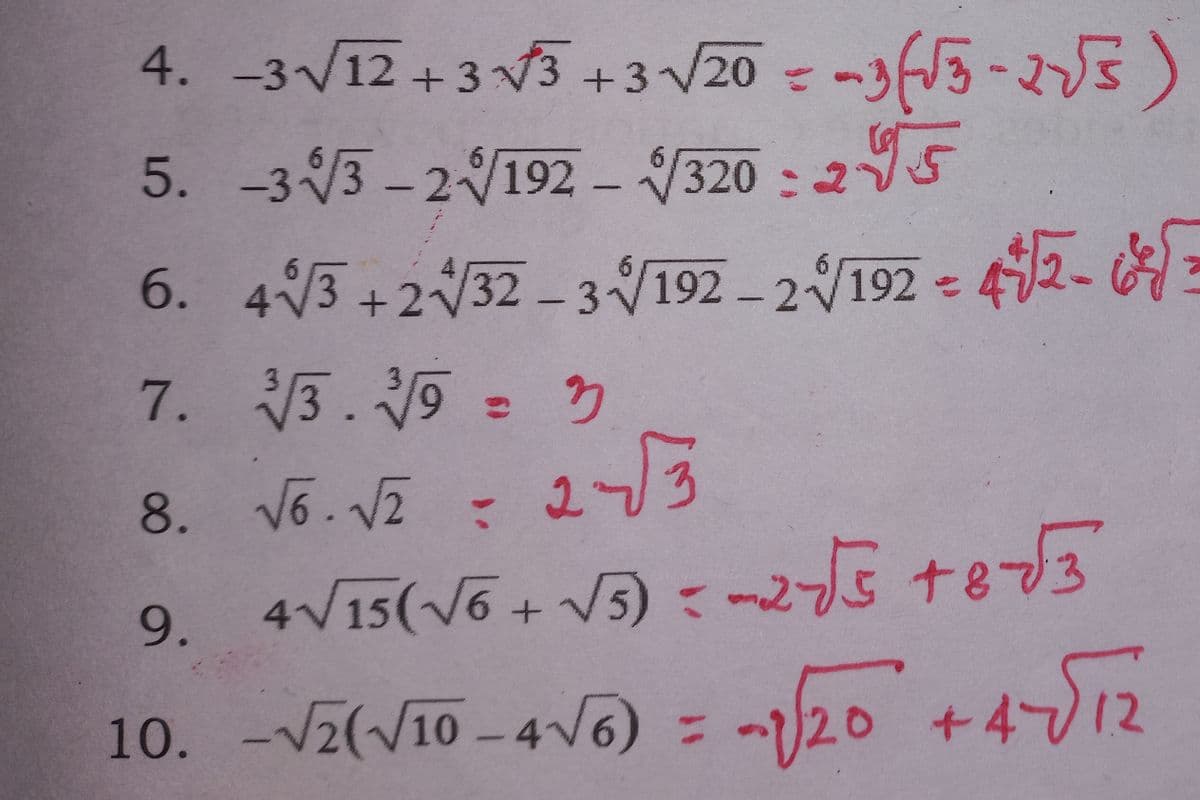 4. -3√12 + 3√3 + 3√20 = -3(√3 - 2√5)
5. -3⁶√3 - 2⁶√192 - ⁶√320 = 2⁶√5
6. 4⁶√3 + 2⁴√32 - 3⁶√192 - 2⁶√192 = 4⁴√2 - 6⁶√3
7. ³√3 . ³√9 = 3
8. √6 . √2 = 2√3
9. 4√15(√6 + √5) = -2√5 + 8√3
10. -√2(√10 - 4√6) = -√20 + 4√12